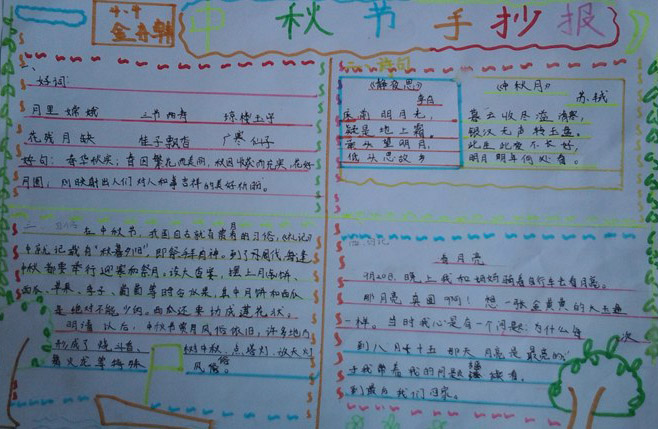 4.4
金舟朝
中秋节手抄报
一、
好词:
月里嫦娥 三节两寿 琼楼玉宇
花残月缺 桂子飘香 广寒仙子
好句:春华秋实:春因繁花而美丽,秋因收获而充实,花好
月圆,则映射出人们对人和事吉祥的美好祝福。
二、
在中秋节,我国自古就有赏月的习俗,《礼记》
中就记载有"秋暮夕月",即祭拜月神。到了周代,每逢
中秋都要举行迎寒和祭月。设大香案,摆上月饼、
西瓜、苹果、李子、葡萄等时令水果,其中月饼和西瓜
是绝对不能少的。西瓜还要切成莲花状。
明清以后,中秋节赏月风俗依旧,许多地方
形成了烧斗香、 树中秋、点塔灯、放天灯
舞火龙等特殊 风俗。
三、诗句
《静夜思》
李白
床前明月光,
疑是地上霜。
举头望明月,
低头思故乡
《中秋月》
苏轼
暮云收尽溢清寒,
银汉无声转玉盘。
此生此夜不长好,
明月明年何处看。
四、日记
看月亮
晚上我和妈妈骑着自行车去看月亮。
那月亮真圆啊!想一张金黄黄的大玉盘
一样。当时我心是有一个问题:为什么每 次
到八月十五那天月亮是最亮的
于我带着我的问题
到最后我们回家。